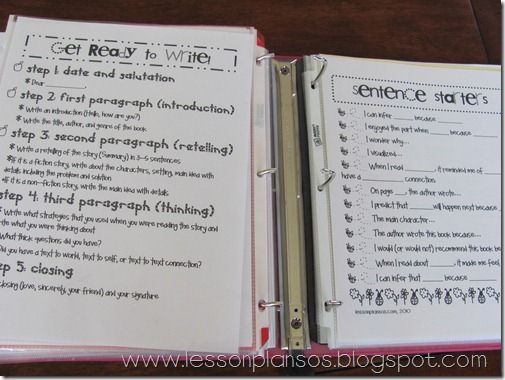 Get Ready to Write!
step 1: date and salutation
*Dear ________,
step 2: first paragraph (introduction)
*Write an introduction (Hello, how are you?)
*Write the title, author, and genre of the book
step 3: second paragraph (retelling)
*Write a retelling of the story (Summary) in 3-5 sentences
*If it is a fiction story, write about the characters, setting, main idea with
details including the problem and solution
*If it is a non-fiction story, write the main idea with details
Step 4: third paragraph (thinking)
Write what strategies that you used when you were reading the story and
what you were thinking about
What thick questions did you have?
Did you have a text to world, text to self, or text to text connection?
5: closing
closing (love, sincerely, your friend) and your signature
sentence starters
I can infer ____ because ____
I enjoyed the part when ____ because ____
I wonder why...
I visualized...
When I read ____, it reminded me of
have a ____ connection.
On page __, the author wrote...
I predict that ____ will happen next because
The main character...
The author wrote this book because...
I would (or would not) recommend this book be
When I read about ____, it make me feel
I can infer that ____ because ____
lessonplansos.com, 2010
www.lessonplansos.blogspot.com